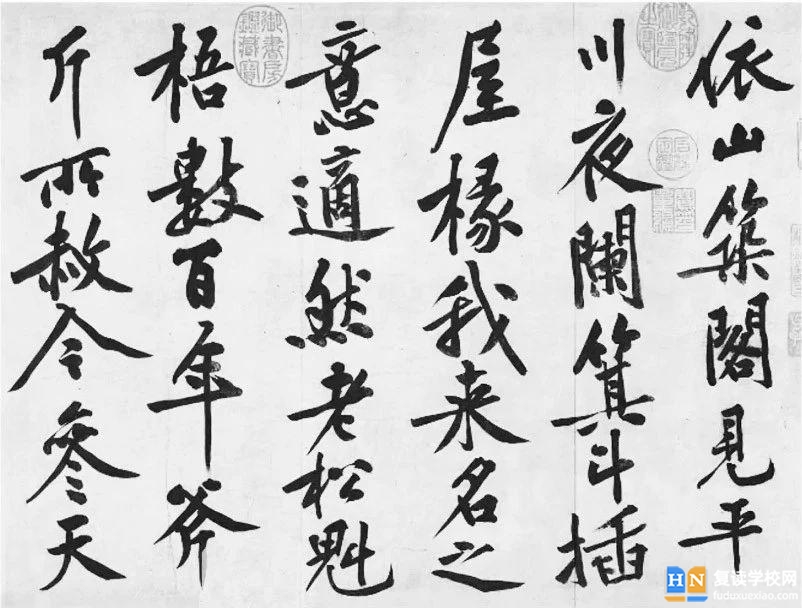 依山築閣見平
川夜闌箕斗插
屋椽我来名之
意適然老松魁
梧數百年斧
斤所赦今參天
御書房鑑藏寶
HN 复读学校网
fuduxuexiao.com